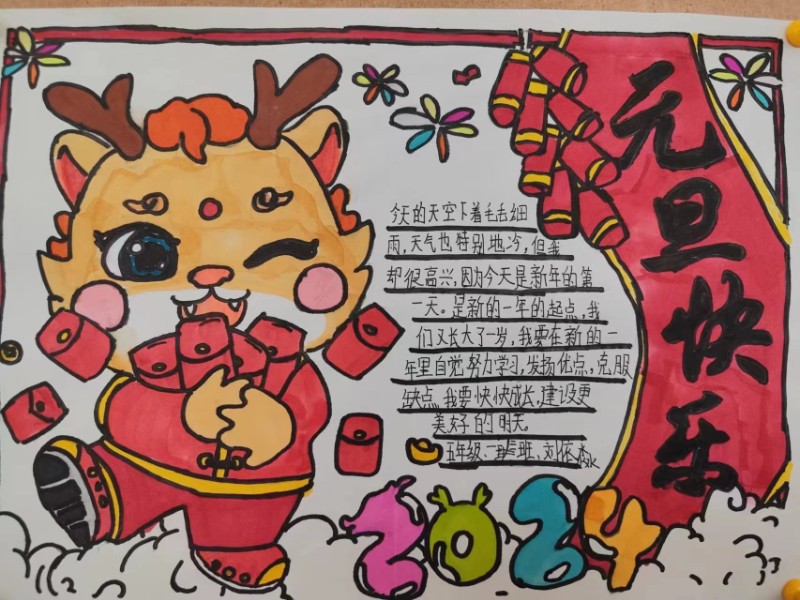 元旦快乐
今天的天空下着毛毛细
雨,天气也特别地冷,但我
却很高兴,因为今天是新年的第
一天。是新的一年的起点,我
们又长大了一岁,我要在新的一
年里自觉努力学习,发扬优点,克服
缺点,我要快快成长,建设更
美好的明天。
五年级 班,刘依
2024